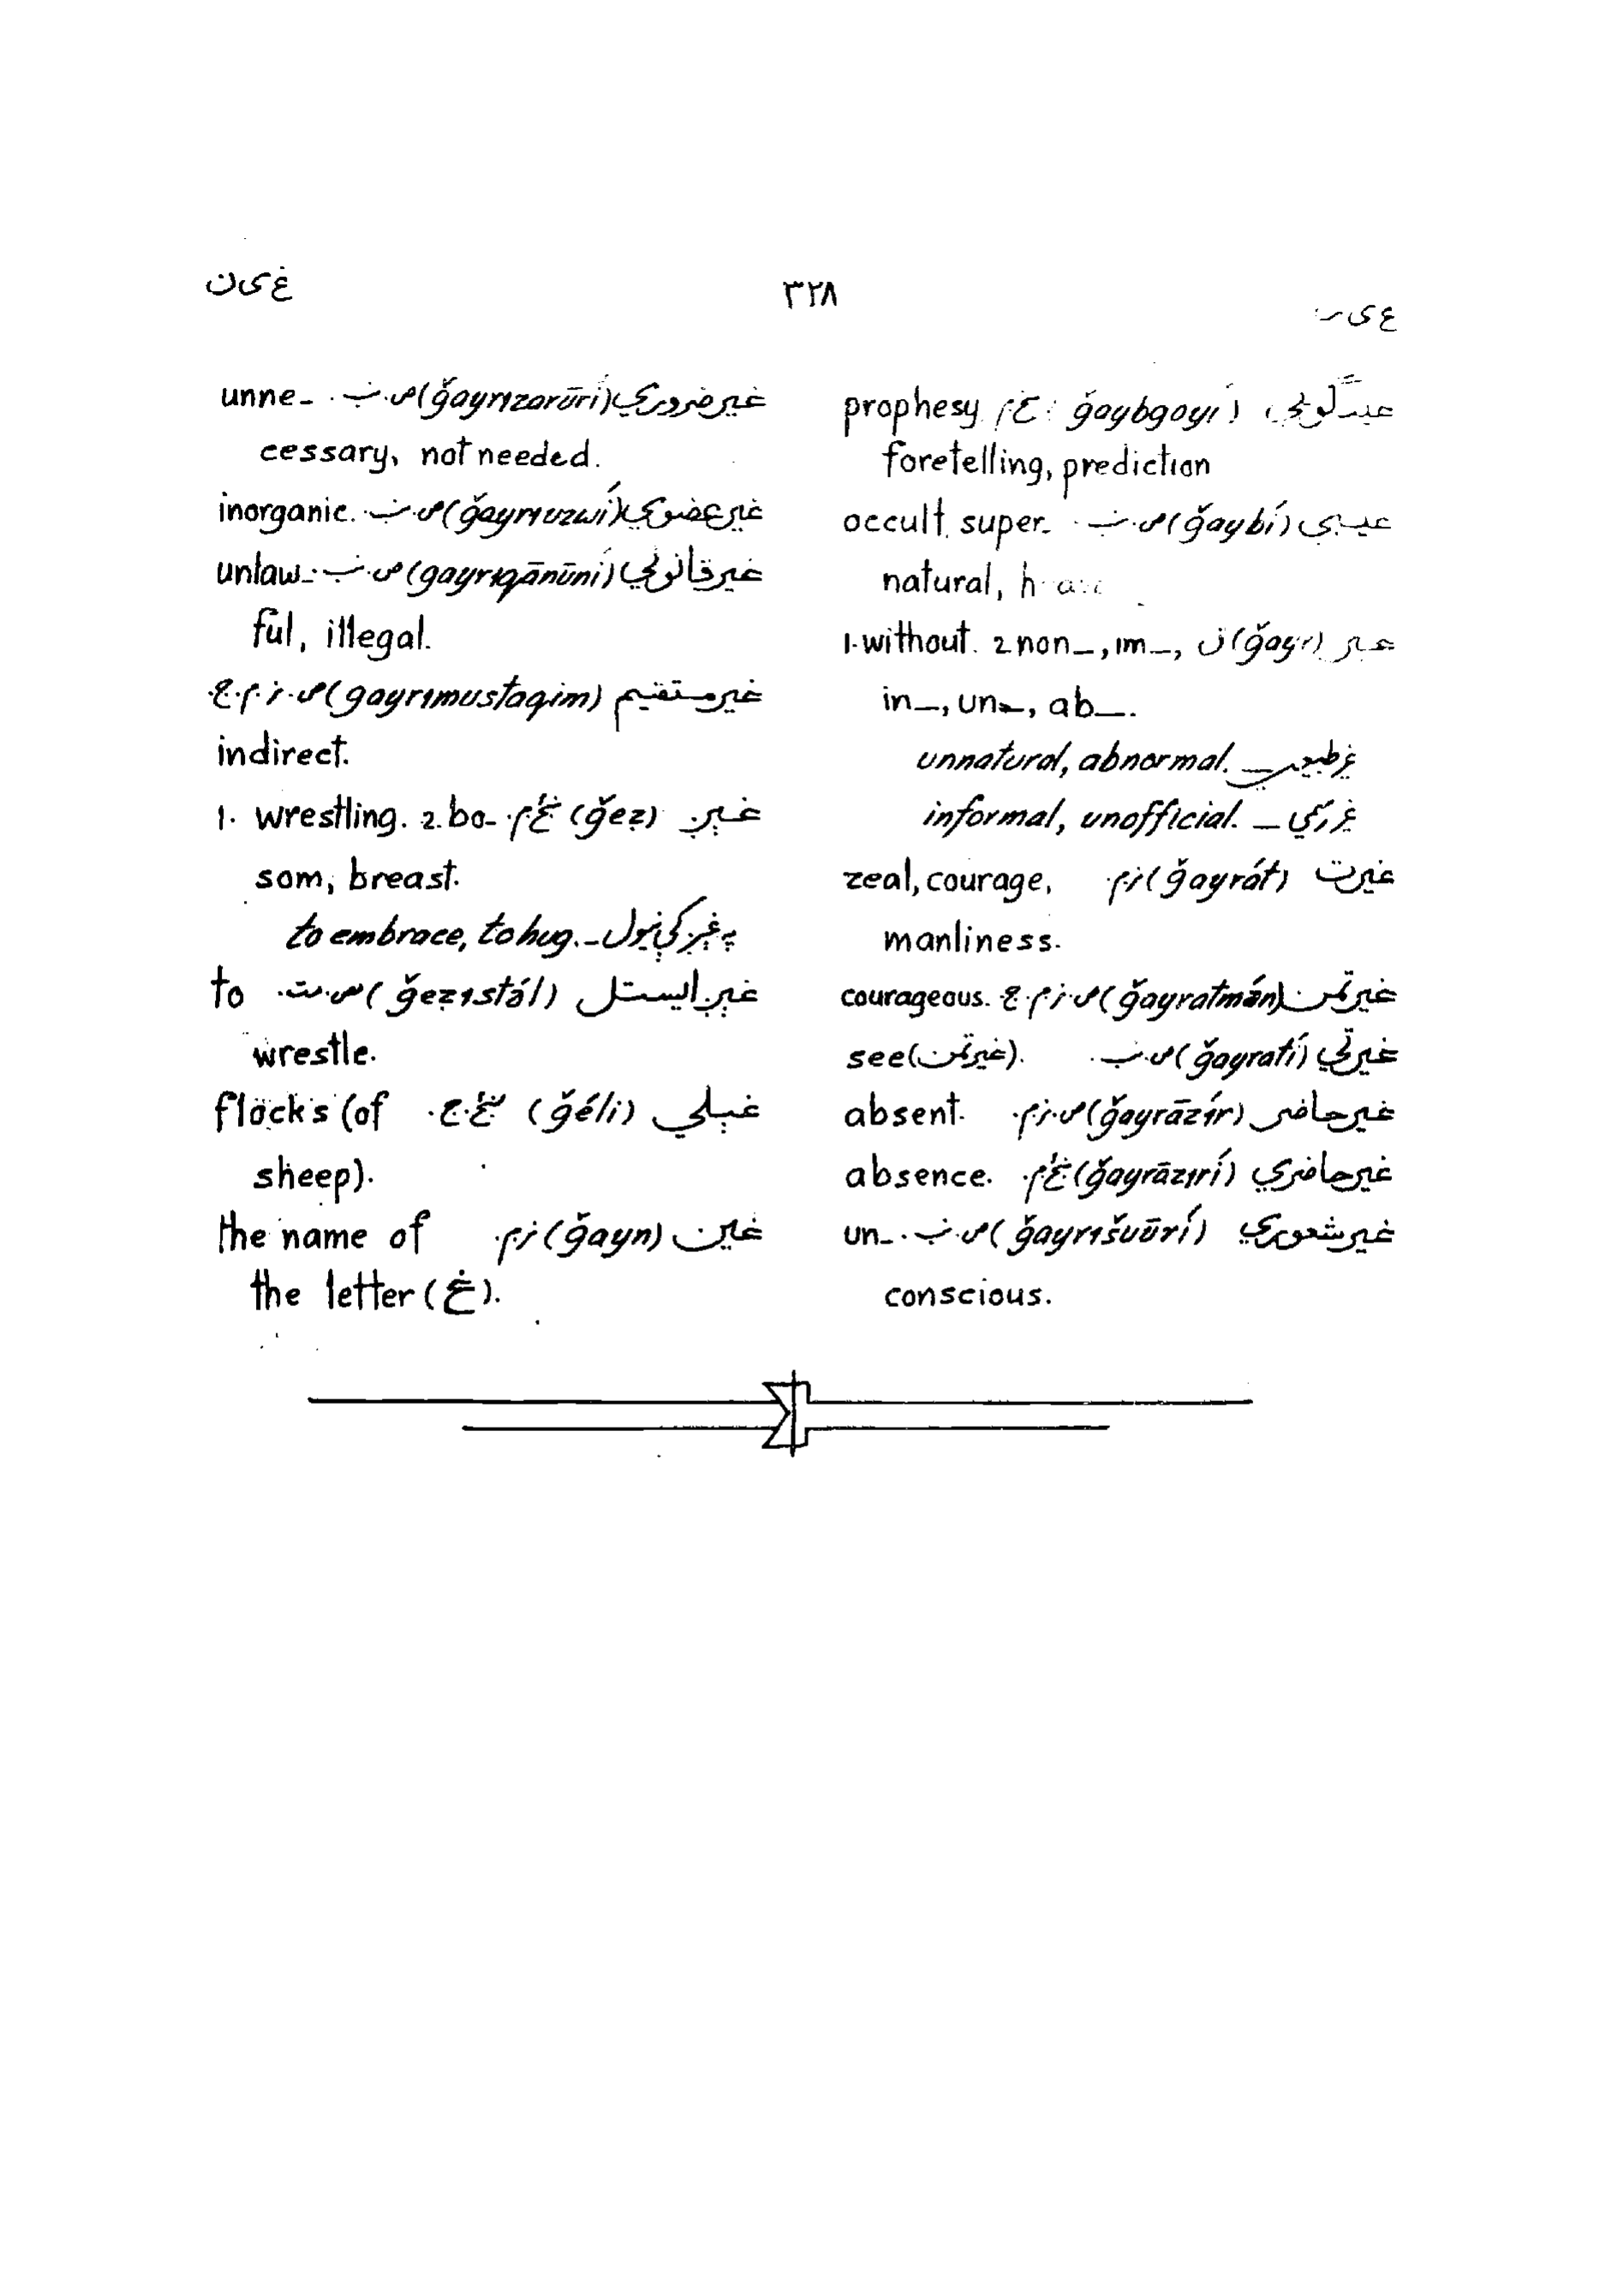 غ ی ر
۳۲۸
غ ی ن
غیبگویي (ğaybgoyí) غ م prophesy
foretelling, prediction
غیبي (ğaybí) ص.ب. occult, super-
natural,
غیر (ğayr) ن 1. without. 2 non_, im_,
in_, un_, ab_.
غ طبیعي _ unnatural, abnormal.
غ رسمي _ informal, unofficial.
غیرت (ğayrát) ز.م. zeal, courage,
manliness.
غیرتمن (ğayratmán) ص.ز.م.ج courageous.
غیرتي (ğayratí) ص.ب. see (غیرتمن).
غیرحاضر (ğayrāzír) ص.ز.م. absent.
غیرحاضري (ğayrāzırí) غ.م. absence.
غیرشعوري (ğayrıšuūrí) ص.ب. un-
conscious.
غیرضروري (ğayrızarūrí) ص.ب. unne-
cessary, not needed.
غیرعضوي (ğayrıuzwí) ص.ب. inorganic.
غیرقانوني (gayrıqānūní) ص.ب. unlaw-
ful, illegal.
غیرمستقیم (gayrımustaqim) ص.ز.م.ج.
indirect.
غېږ (ğeẓ) غ.م. 1. wrestling. 2. bo-
som, breast.
په غېږ کې نیول _ to embrace, to hug.
غېږ ایستل (ğeẓıstə́l) ص.مت. to
wrestle.
غېلي (ğéli) غ.ج. flocks (of
sheep).
غین (ğayn) ز.م. the name of
the letter (غ).